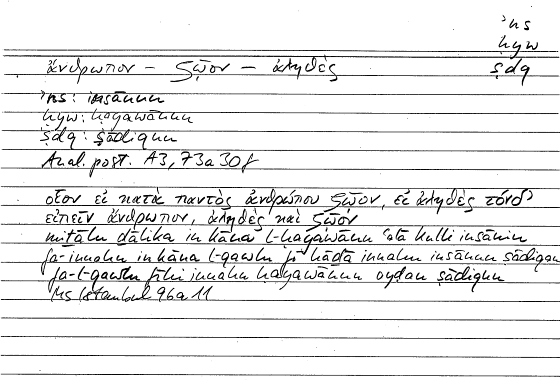 ʾns
ḥyw
ṣdq
ἄνθρωπον – ζῷον – ἀληθές
ʾns: insānun
ḥyw: ḥayawānun
ṣdq: ṣādiqun
Anal. post. A3, 73a30f
οἷον εἰ κατὰ παντὸς ἀνθρώπου ζῷον, εἰ ἀληθὲς τόνδ'
εἰπεῖν ἄνθρωπον, ἀληθὲς καὶ ζῷον
mitālu dālika in kāna l-ḥayawānu ʿalā kulli insānin
fa-innahu in kāna l-qawlu fī hādā innahu insānun ṣādiqan
fa-l-qawlu fīhi innahu ḥayawānun ayḍan ṣādiqun
Ms Istanbul 96a11